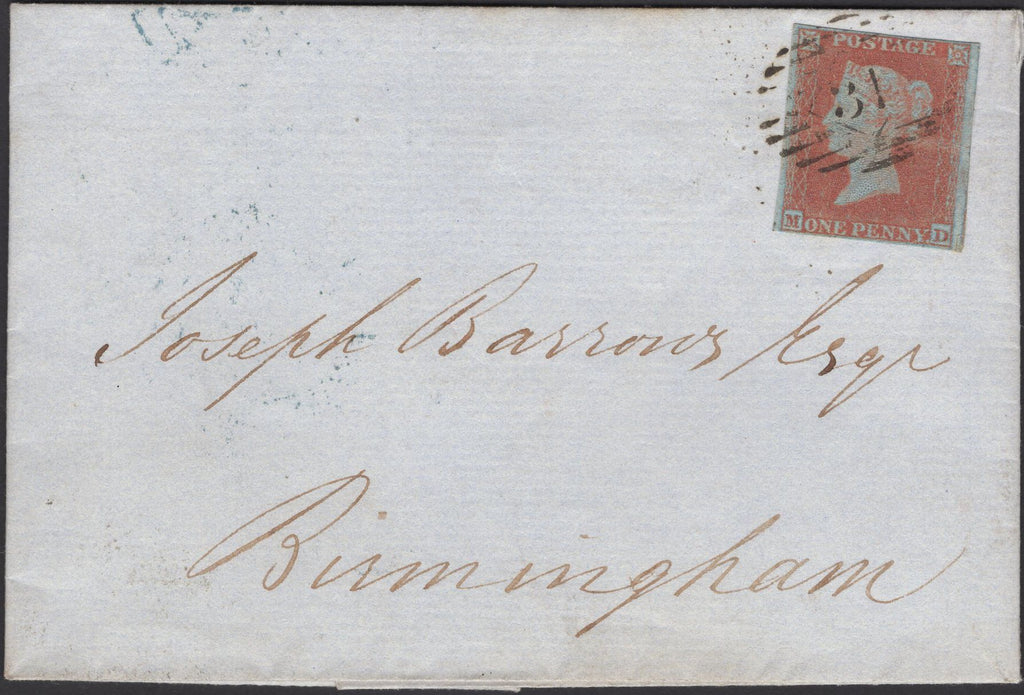 POSTAGE
M ONE PENNY D
Joseph Barrows Esqr
Birmingham